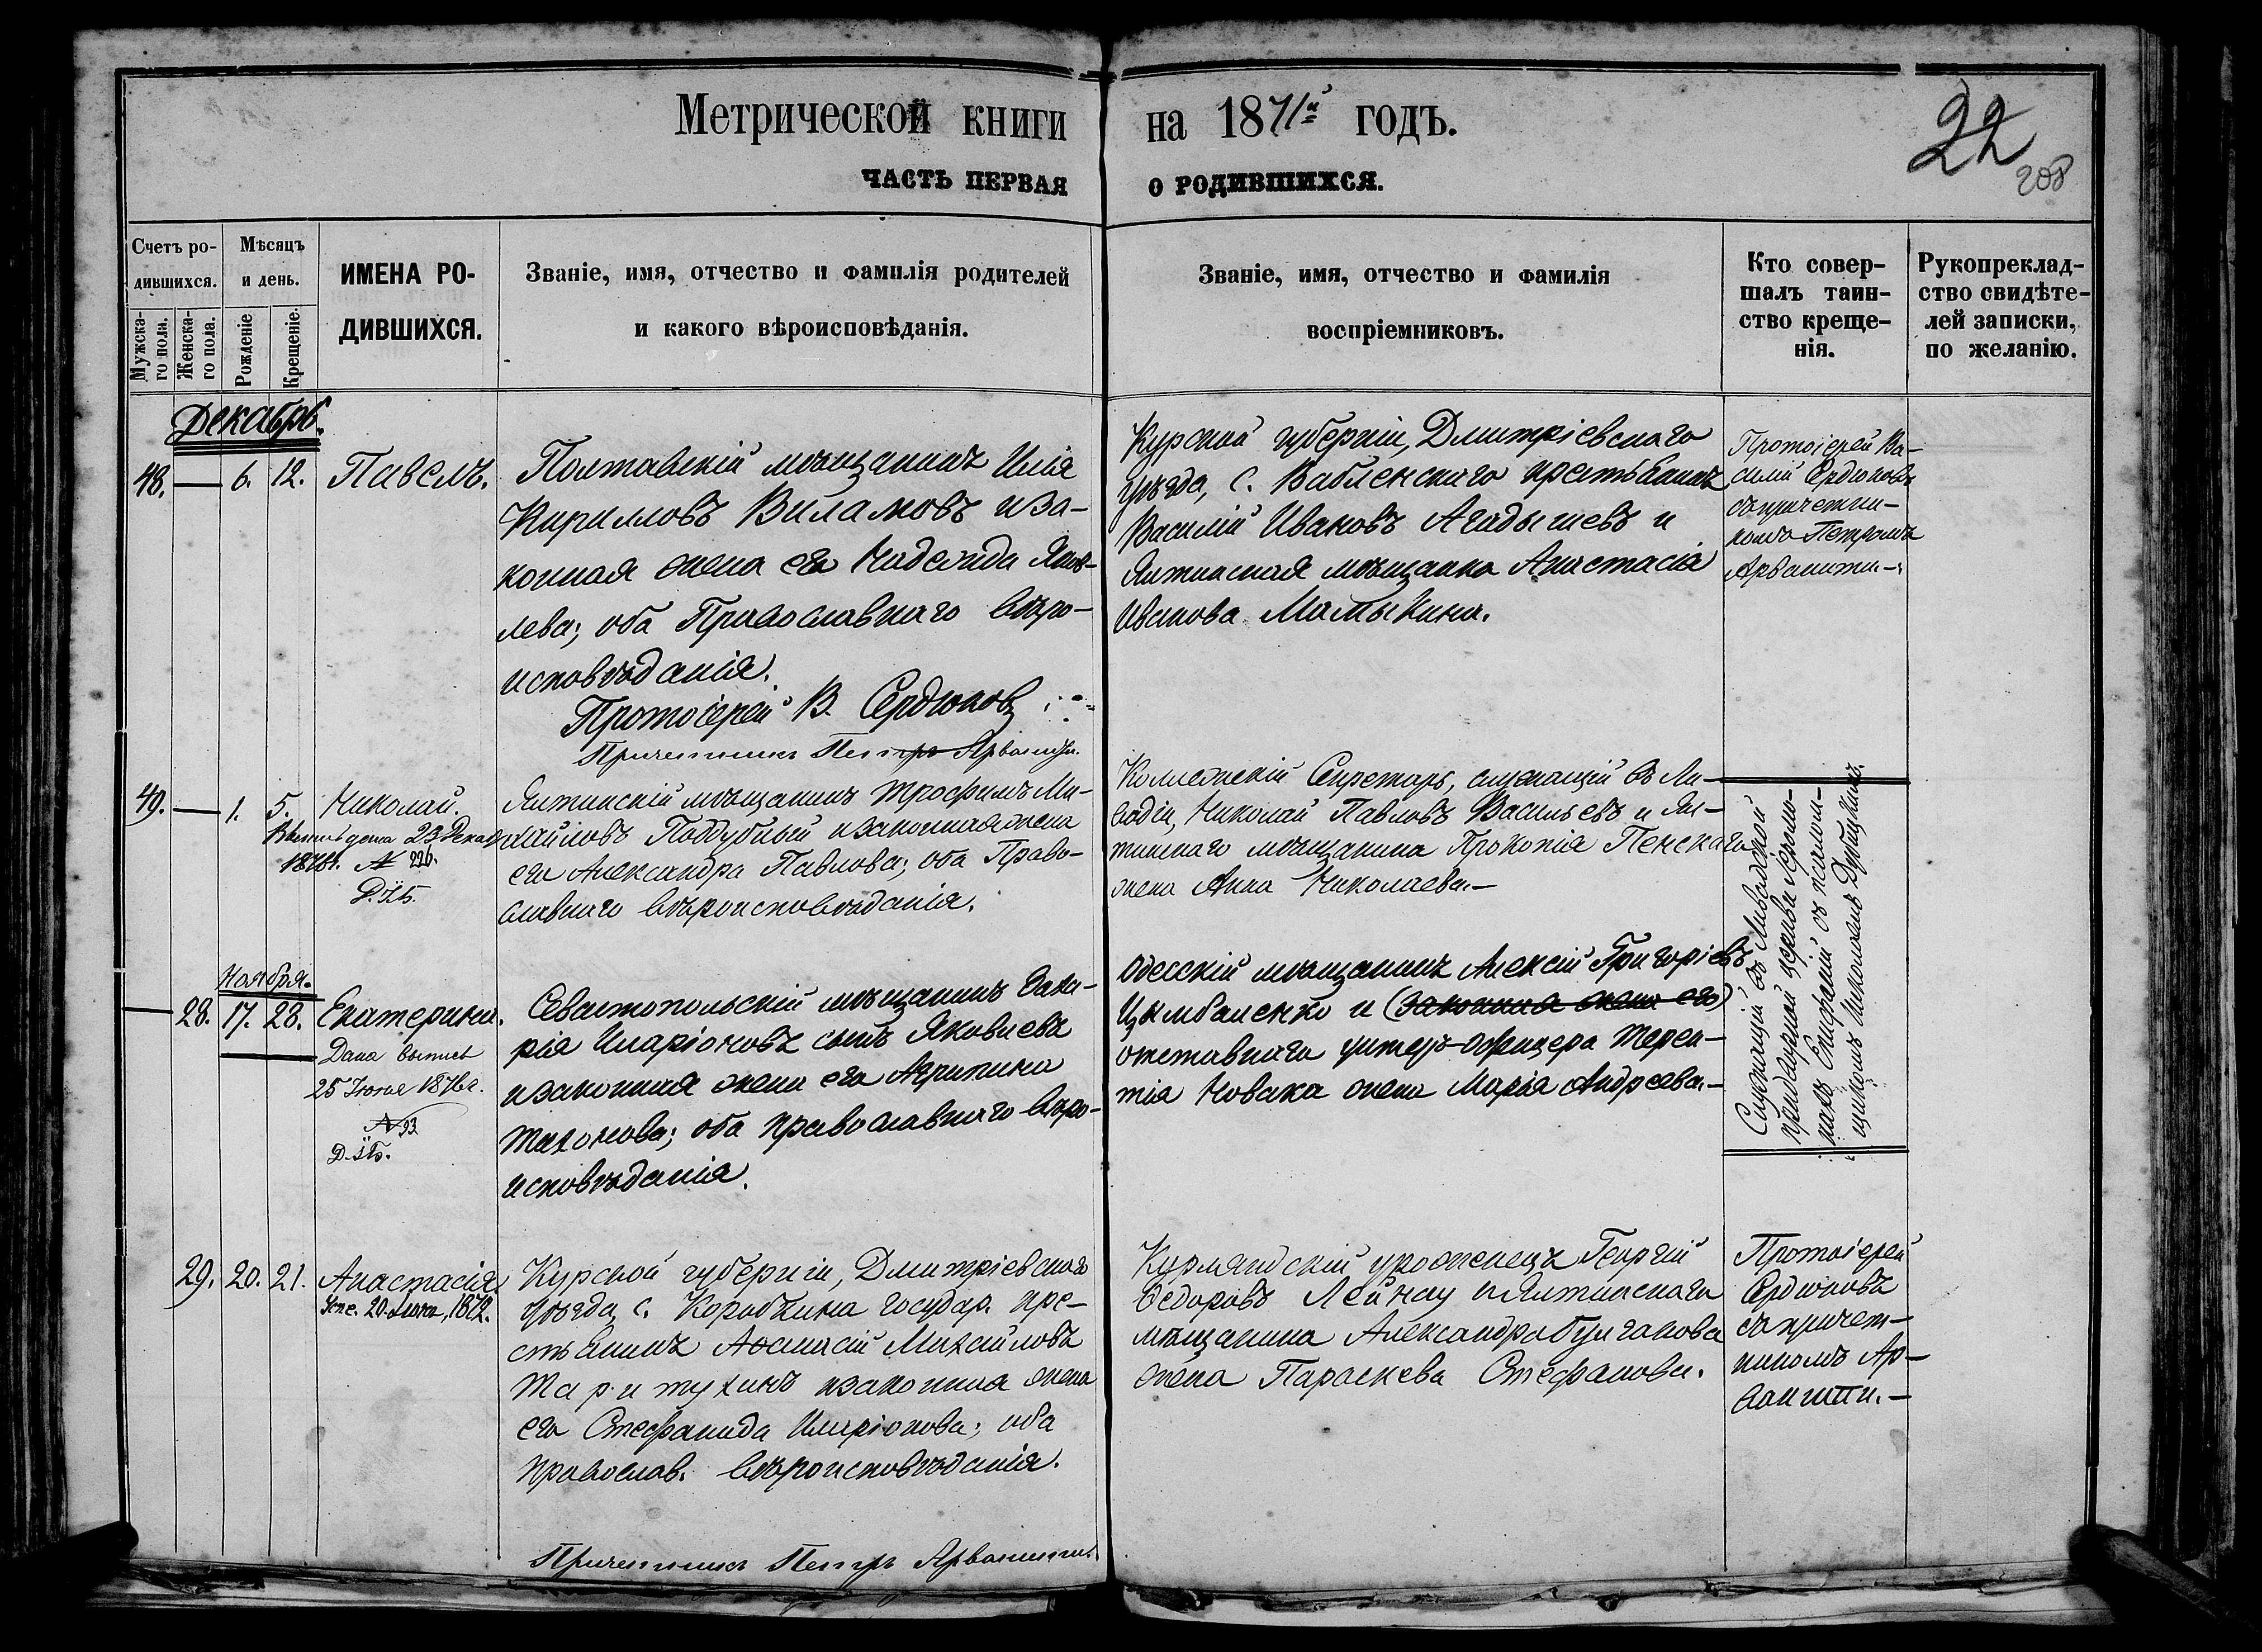 Метрической книги на 1871й годъ.
22
208
ЧАСТЬ ПЕРВАЯ О РОДИВШИХСЯ.
Счетъ ро-
дившихся.
Мужска-
го пола.
Женска-
го пола.
Мѣсяцъ
и день.
Рожденіе
Крещеніе.
ИМЕНА РО-
ДИВШИХСЯ.
Званіе, имя, отчество и фамилія родителей
и какого вѣроисповѣданія.
Званіе, имя, отчество и фамилія
воспріемниковъ.
Кто совер-
шалъ таин-
ство креще-
нія.
Рукопреклад-
ство свидѣте-
лей записки,
по желанію.
Декабрь.
48. — 6. 12. Павелъ.
Полтавскій мѣщанинъ Илія
Кирилловъ Виламовъ и за-
конная жена его Надежда Яков-
лева; оба Православнаго вѣро-
исповѣданія.
Протоіерей В. Сердюковъ
Причетникъ Петръ Арванити.
Курской губерніи, Дмитріевскаго
уѣзда, с. Вабленскаго крестьянинъ
Василій Ивановъ Агадышевъ и
Ялтинская мѣщанка Анастасія
Иванова Мамыкина.
Протоіерей Ва-
силій Сердюковъ
съ причетни-
комъ Петромъ
Арванити.
49. — 1. 5. Николай.
Выпись дана 23 Декаб.
1878г. № 226.
Ялтинскій мѣщанинъ Трофимъ Ми-
хайловъ Поддубный и законная жена
его Александра Павлова; оба Право-
славнаго вѣроисповѣданія.
Коллежскій Секретарь, служащій въ Ли-
вадіи, Николай Павловъ Васильевъ и Ял-
тинскаго мѣщанина Прокопія Пенскаго
жена Анна Николаева.—
Служащій въ Ливадійской
придворной церкви Іеромо-
нахъ Епифаній съ псалом-
щикомъ Николаемъ
Ноября.
— 28. 17. 28. Екатерина.
Дана выпись
25 Іюня 1876г.
№ 93
Севастопольскій мѣщанинъ Заха-
рія Иларіоновъ сынъ Яковлевъ
и законная жена его Агрипина
Тихонова; оба православнаго вѣро-
исповѣданія.
Одесскій мѣщанинъ Алексій Григоріевъ
Цымбаленко и (законная жена его)
отставнаго унтеръ-офицера Терен-
тія Новака жена Марія Андреева.—
29. 20. 21. Анастасія
1872.
Курской губерніи, Дмитріевскаго
уѣзда, с. Коробкина государ. кре-
стьянинъ Аѳанасій Михайловъ
Таритухинъ и законная жена
его Стефанида Иларіонова; оба
православ. вѣроисповѣданія.
Причетникъ Петръ Арванити.
Курляндскій уроженецъ Георгій
Ѳедоровъ Лейнау и Ялтинскаго
мѣщанина Александра Булгакова
жена Параскева Стефанова.
Протоіерей
Сердюковъ
съ причет-
никомъ Ар-
ванити.—